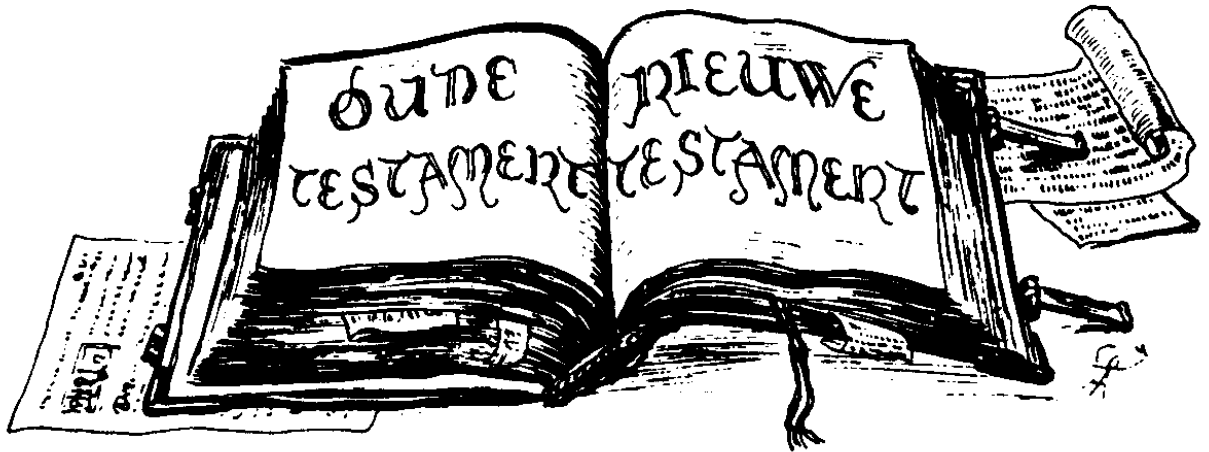 OUDE
TESTAMENT
NIEUWE
TESTAMENT